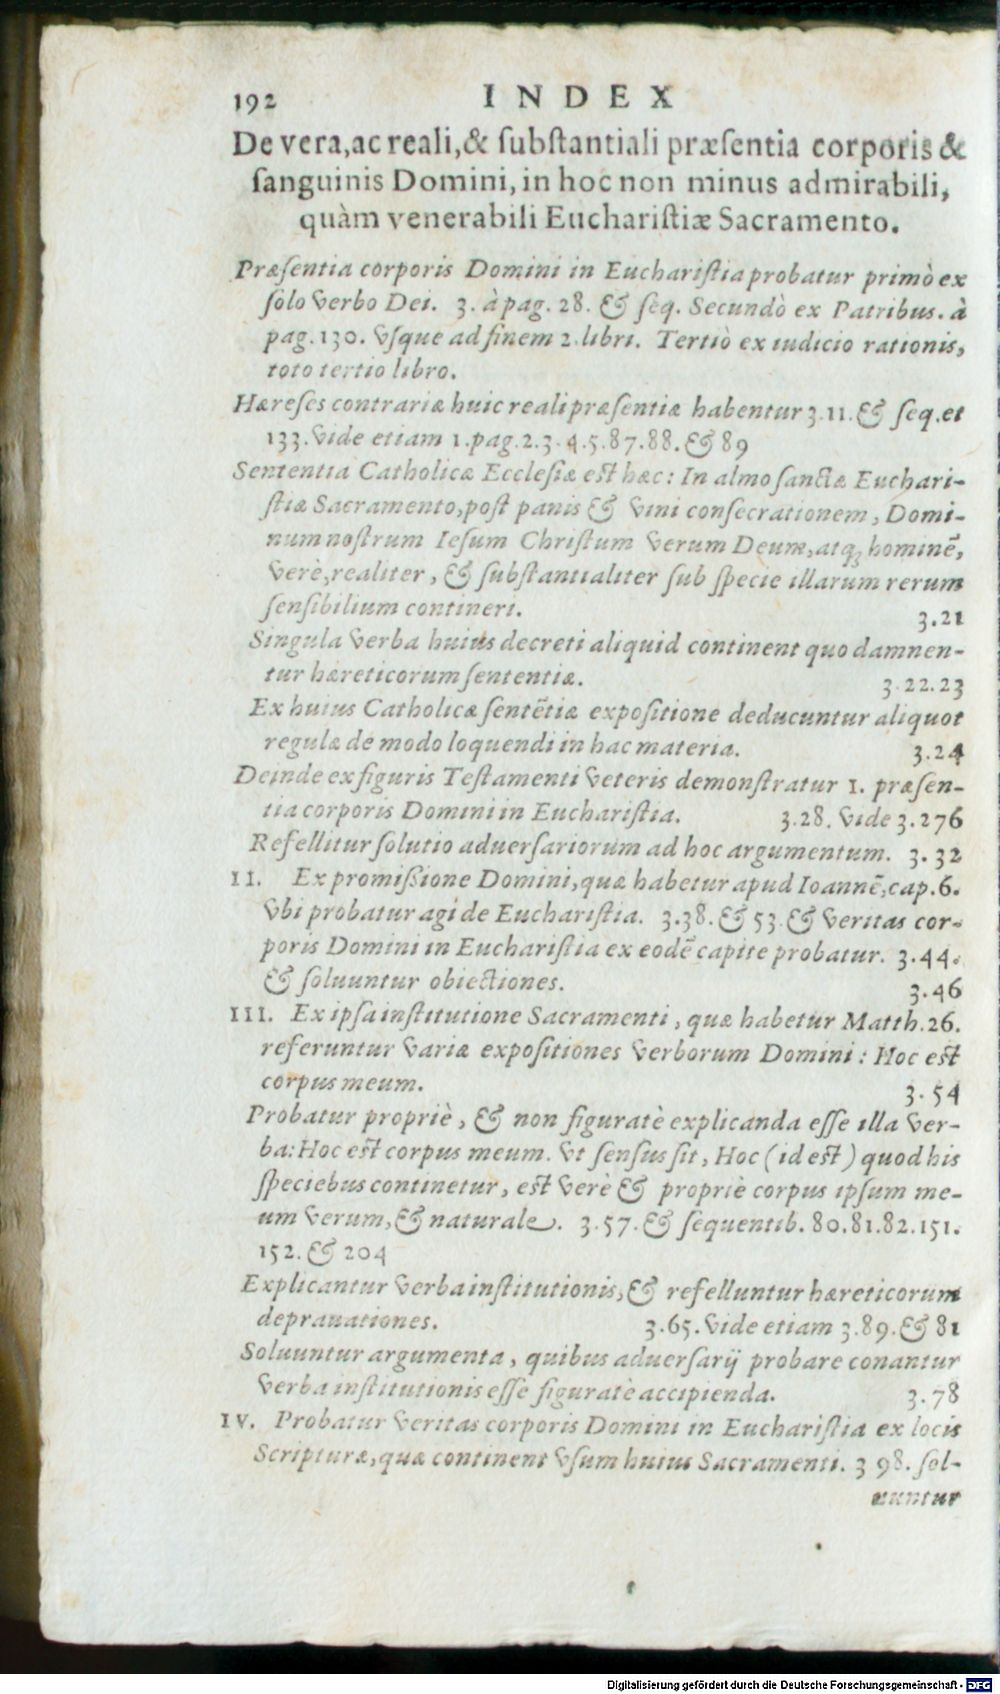 192 INDEX
De vera, ac reali, & ſubſtantiali præſentia corporis &
ſanguinis Domini, in hoc non minus admirabili,
quàm venerabili Euchariſtiæ Sacramento.
Præſentia corporis Domini in Euchariſtia probatur primò ex
ſolo verbo Dei. 3. à pag. 28. & ſeq. Secundò ex Patribus. à
pag. 130. vſque ad finem 2. libri. Tertiò ex iudicio rationis,
toto tertio libro.
Hæreſes contrariæ huic reali præſentiæ habentur 3. 11. & ſeq. et
133. vide etiam 1. pag. 2. 3. 4. 5. 87. 88. & 89
Sententia Catholicæ Eccleſiæ eſt hæc: In almo ſanctæ Euchari-
ſtiæ Sacramento, poſt panis & vini conſecrationem, Domi-
num noſtrum Ieſum Chriſtum verum Deum, atq; hominē,
verè, realiter, & ſubſtantialiter ſub ſpecie illarum rerum
ſenſibilium contineri. 3. 21
Singula verba huius decreti aliquid continent quo damnen-
tur hæreticorum ſententiæ. 3. 22. 23
Ex huius Catholicæ ſentētiæ expoſitione deducuntur aliquot
regulæ de modo loquendi in hac materia. 3. 24
Deinde ex figuris Teſtamenti veteris demonſtratur 1. præſen-
tia corporis Domini in Euchariſtia. 3. 28. vide 3. 276
Refellitur ſolutio aduerſariorum ad hoc argumentum. 3. 32
II. Ex promiſſione Domini, quæ habetur apud Ioannē, cap. 6.
vbi probatur agi de Euchariſtia. 3. 38. & 53. & veritas cor-
poris Domini in Euchariſtia ex eodē capite probatur. 3. 44.
& ſoluuntur obiectiones. 3. 46
III. Ex ipſa inſtitutione Sacramenti, quæ habetur Matth. 26.
referuntur variæ expoſitiones verborum Domini: Hoc eſt
corpus meum. 3. 54
Probatur propriè, & non figuratè explicanda eſſe illa ver-
ba: Hoc eſt corpus meum. vt ſenſus ſit, Hoc (id eſt) quod his
ſpeciebus continetur, eſt verè & propriè corpus ipſum me-
um verum, & naturale. 3. 57. & ſequentib. 80. 81. 82. 151.
152. & 204
Explicantur verba inſtitutionis, & refelluntur hæreticorum
deprauationes. 3. 65. vide etiam 3. 89. & 81
Soluuntur argumenta, quibus aduerſarij probare conantur
verba inſtitutionis eſſe figuratè accipienda. 3. 78
IV. Probatur veritas corporis Domini in Euchariſtia ex locis
Scripturæ, quæ continent vſum huius Sacramenti. 3 98. ſol-
uuntur
Digitalisierung gefördert durch die Deutsche Forschungsgemeinschaft - DFG